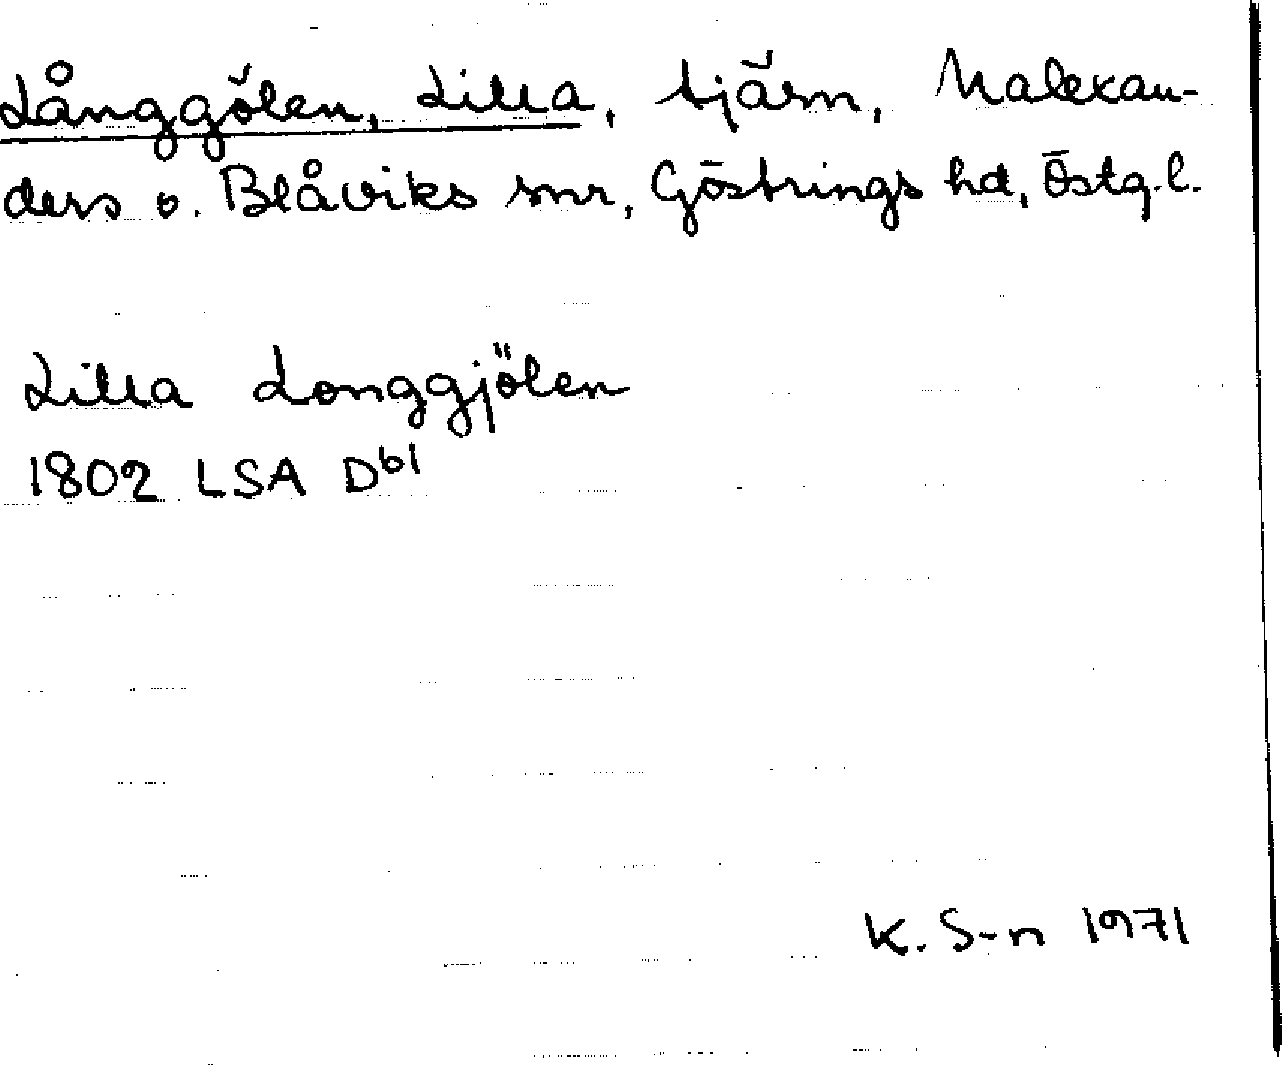 Långgölen, Lilla, tjärn, Malexan-
ders o. Blåviks snr, Göstrings hd, Östg.l.
Lilla Longgjölen
1802 LSA D61
K. S-n 1971